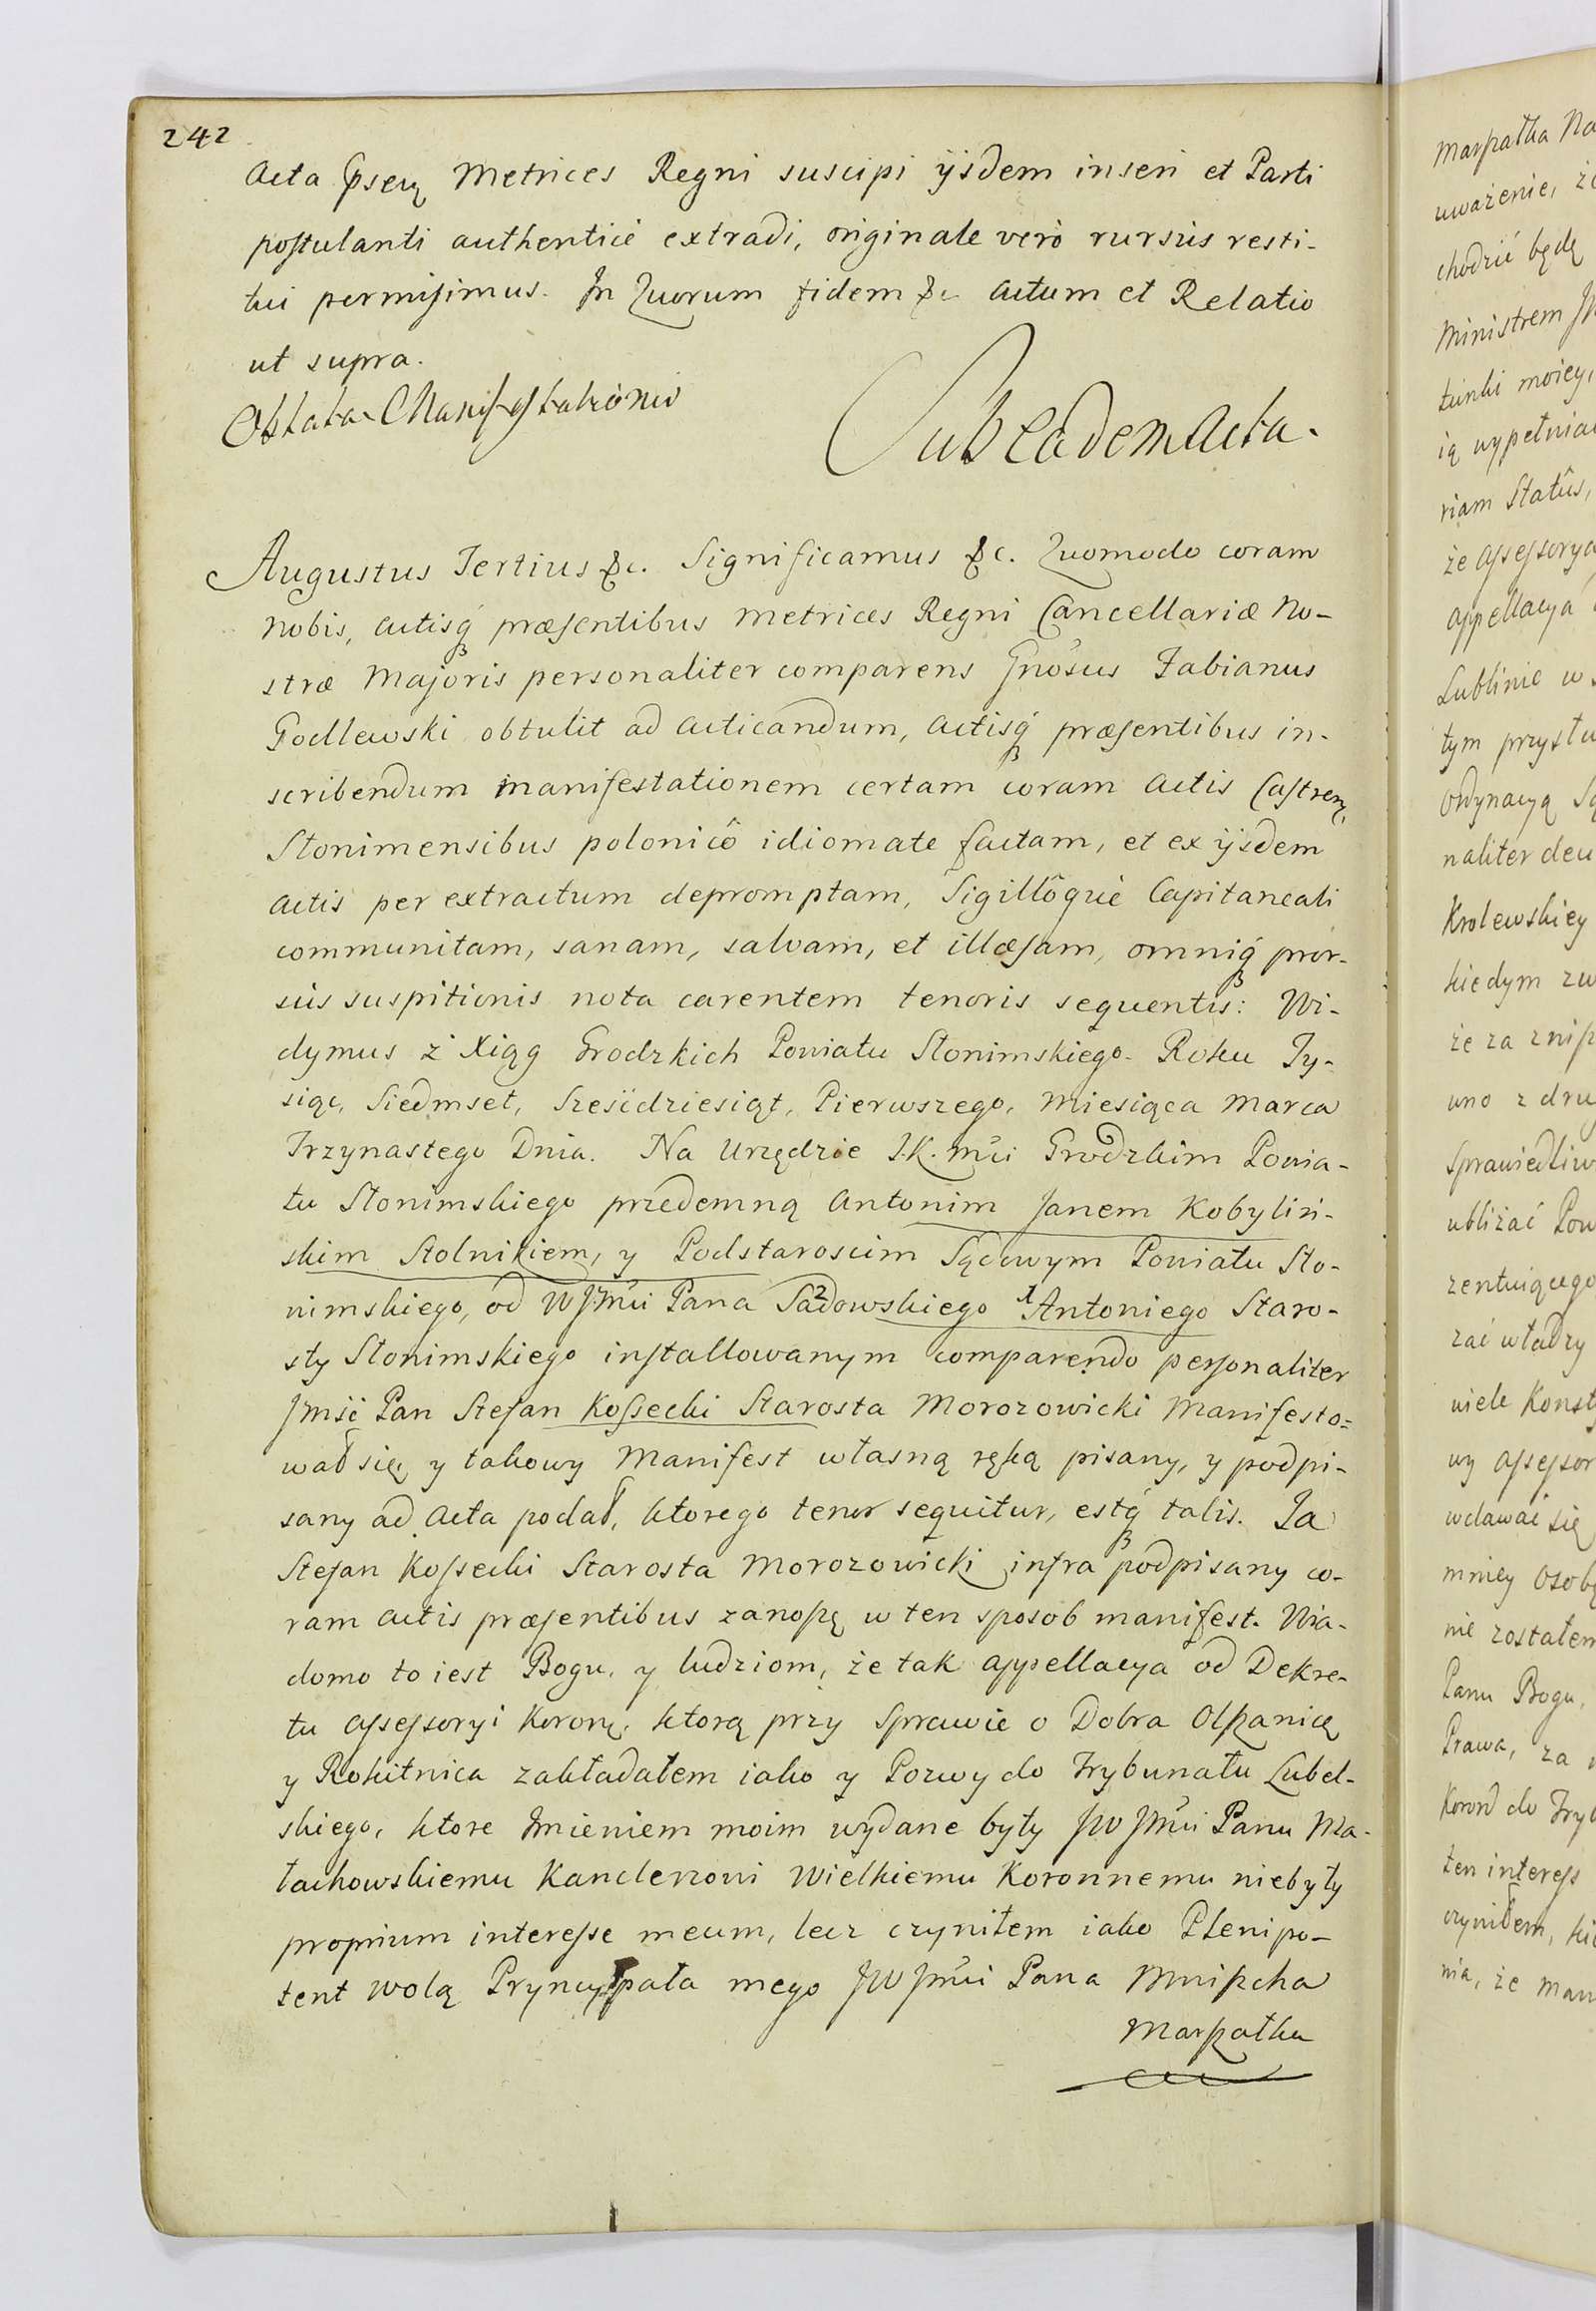 242
Acta Pnsený Metrices Regni suscipi ijsdem inseri et Parti
postulanti authenticè extradi, originale verò rursùs resti-
tui permisimus. In Quorum fidem &c Actum et Relatio
ut supra.
Oblata Manifestationis
Sub Eadem Acta.
Augustus Tertius &c. Significamus &c. Quomodo coram
Nobis, Actisq́ præsentibus Metrices Regni Cancellariæ No-
stræ Majoris personaliter comparens Gnosus Fabianus
Godlewski obtulit ad Acticandum, Actisq́ præsentibus in-
scribendum manifestationem certam coram Actis Castren̄
Słonimensibus polonicô idiomate factam, et ex ijsdem
Actis per extractum depromptam, Sigillôque Capitaneali
communitam, sanam, salvam, et illæsam, omniq́ pror-
sùs suspitionis nota carentem tenoris sequentis: Wi-
dymus z Xiąg Grodzkich Powiatu Słonimskiego. Roku Ty-
siąc, Siedmset, Sześćdziesiąt, Pierwszego, Miesiąca Marca
Trzynastego Dnia. Na Urzędzie J.K. Mći Grodzkim Powia-
tu Słonimskiego przedemną Antonim Janem Kobyliń-
skim Stolnikiem, y Podstaroscim Sądowym Powiatu Sło-
nimskiego, od WJMći Pana Sadowskiego 2 1 Antoniego Staro-
sty Słonimskiego installowanym comparendo personaliter
Jmść Pan Stefan Kossecki Starosta Morozowicki Manifesto=
wał się y takowy Manifest własną ręką pisany, y podpi-
sany ad Acta podał, ktorego tenor sequitur, estq́ talis. Ja
Stefan Kossecki Starosta Morozowicki infra podpisany co-
ram Actis præsentibus zanoszę w ten sposob manifest. Wia-
domo to iest Bogu, y ludziom, że tak appellacya od Dekre-
tu Assessoryi Koronn. ktorą przy Sprawie o Dobra Olszanicę
y Rokitnica zakładałem iako y Pozwy do Trybunału Lubel-
skiego, ktore Imieniem moim wydane były JW JMći Panu Ma-
łachowskiemu Kanclerzowi Wielkiemu Koronnemu niebyły
proprium interesse meum, lecz czyniłem iako Plenipo-
tent wolą Pryncypała mego JW JMći Pana Mniszcha
Marszałka
Marszałka Na
uważenie, że
chodzić będę
Ministrem JW
tunki moiey,
ią wypełniać
riam Statûs,
że Assessorya
Appellacya
Lublinie w
tym przystu
Ordynacyą Są
naliter decu
Krolewskiey
kiedym zw
że za znisz
uno z dru
Sprawiedliw
ubliżać Pow
zentuiącego
zać władzy
wiele Konsty
wy Assessor
wdawać się
mniey Osobę
nie zostałem
Panu Bogu,
Prawa, za
Koron do Tryb
ten interess
czyniłem, kie
nia, że Man